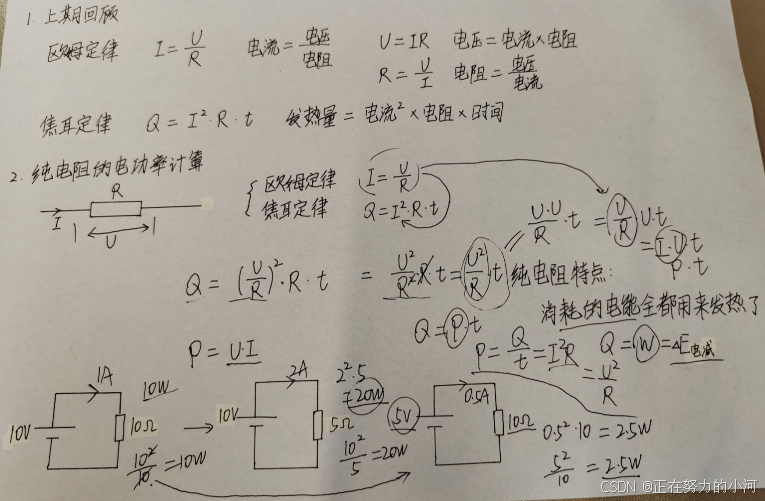 1. 上期回顾
欧姆定律 I = U/R 电流 = 电压/电阻 U = IR 电压 = 电流×电阻
R = U/I 电阻 = 电压/电流
焦耳定律 Q = I²·R·t 发热量 = 电流²×电阻×时间
2. 纯电阻的电功率计算
R
I
U
{ 欧姆定律 I = U/R
焦耳定律 Q = I²·R·t
U·U/R ·t = (U/R) U·t
= I·U·t
P·t
Q = (U/R)²·R·t = U²/R²·R t = (U²/R) t
纯电阻特点:
消耗的电能全都用来发热了
Q = P·t
Q = W = ΔE电减
P = Q/t = I²R
= U²/R
P = U·I
1A 10W
10V 10Ω
10²/10 = 10W
2A 2²·5
= 20W
10V 5Ω
10²/5 = 20W
5V 0.5A 10Ω
0.5²·10 = 2.5W
5²/10 = 2.5W
CSDN @正在努力的小河